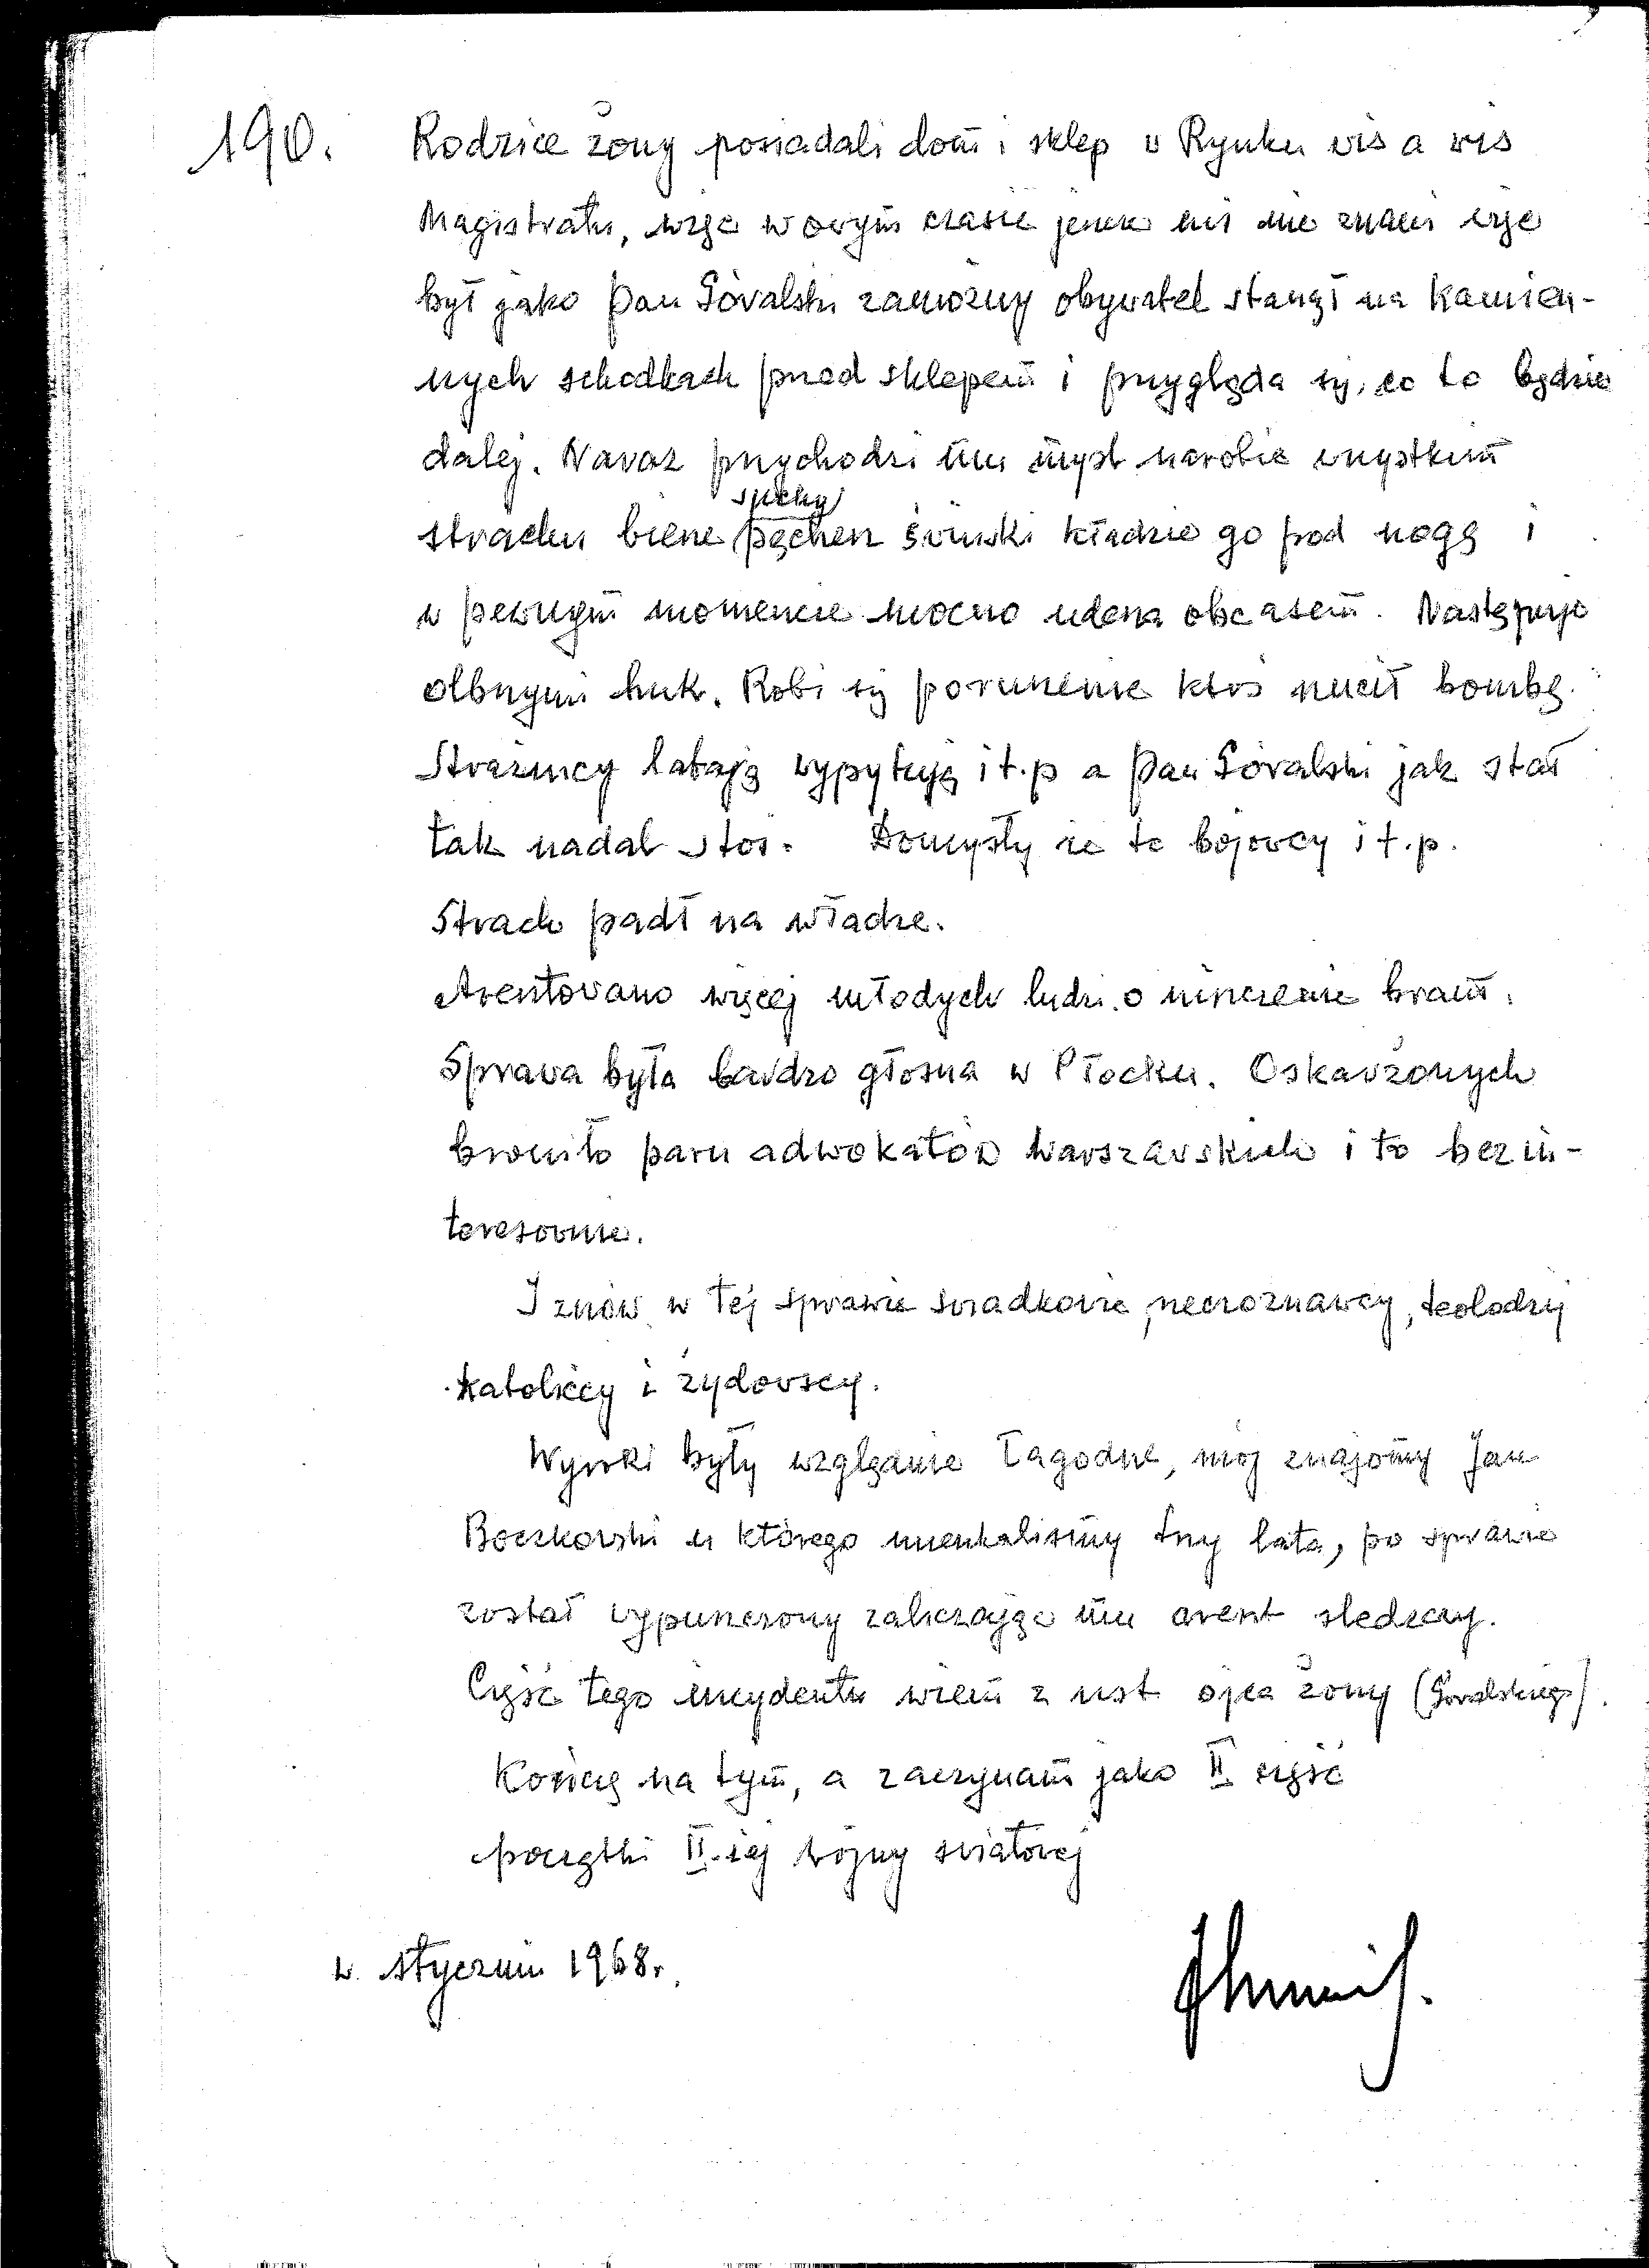 190.
Rodzice żony posiadali dom i sklep w Rynku vis a vis
Magistratu, więc w owym czasie jeszcze mi nie znani więc
był jako Pan Góralski zamożny obywatel stanął na kamien-
nych schodkach przed sklepem i przygląda się, co to będzie
dalej. Naraz przychodzi mu myśl narobić wszystkim
strachu bierze suchy pęcherz świński kładzie go pod nogę i
w pewnym momencie mocno uderza obcasem. Następuje
olbrzymi huk. Robi się poruszenie ktoś rzucił bombę.
Strażnicy latają wypytują i t.p a Pan Góralski jak stał
tak nadal stoi. Domysły że to bojowcy i t.p.
Strach padł na władze.
Aresztowano więcej młodych ludzi o niszczenie bram.
Sprawa była bardzo głośna w Płocku. Oskarżonych
broniło paru adwokatów warszawskich i to bezin-
teresownie.
I znów w tej sprawie świadkowie, rzeczoznawcy, teolodzy
katoliccy i żydowscy.
Wyroki były względnie łagodne, mój znajomy Jan
Boczkowski u którego mieszkaliśmy trzy lata, po sprawie
został wypuszczony zaliczając mu areszt śledczy.
Część tego incydentu wiem z ust ojca żony (Góralskiego).
Kończę na tym, a zaczynam jako II część
początki II-iej wojny światowej
w styczniu 1968r.